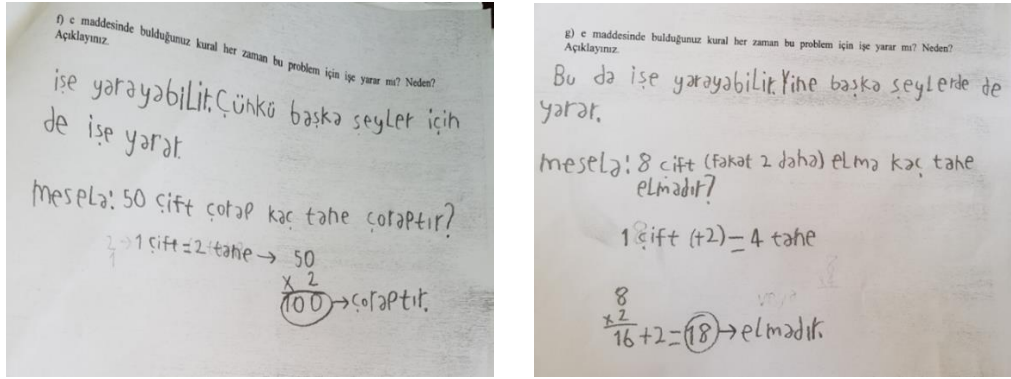 f) e maddesinde bulduğunuz kural her zaman bu problem için işe yarar mı? Neden?
Açıklayınız.
işe yarayabilir. Çünkü başka şeyler için
de işe yarar.
Mesela: 50 çift çorap kaç tane çoraptır?
1 çift = 2 tane → 50
x 2
100 → çoraptır.
g) e maddesinde bulduğunuz kural her zaman bu problem için işe yarar mı? Neden?
Açıklayınız.
Bu da işe yarayabilir. Yine başka şeylerde de
yarar.
mesela: 8 çift (fakat 2 daha) elma kaç tane
elmadır?
1 çift (+2) = 4 tane
8
x 2
16 + 2 = 18 → elmadır.